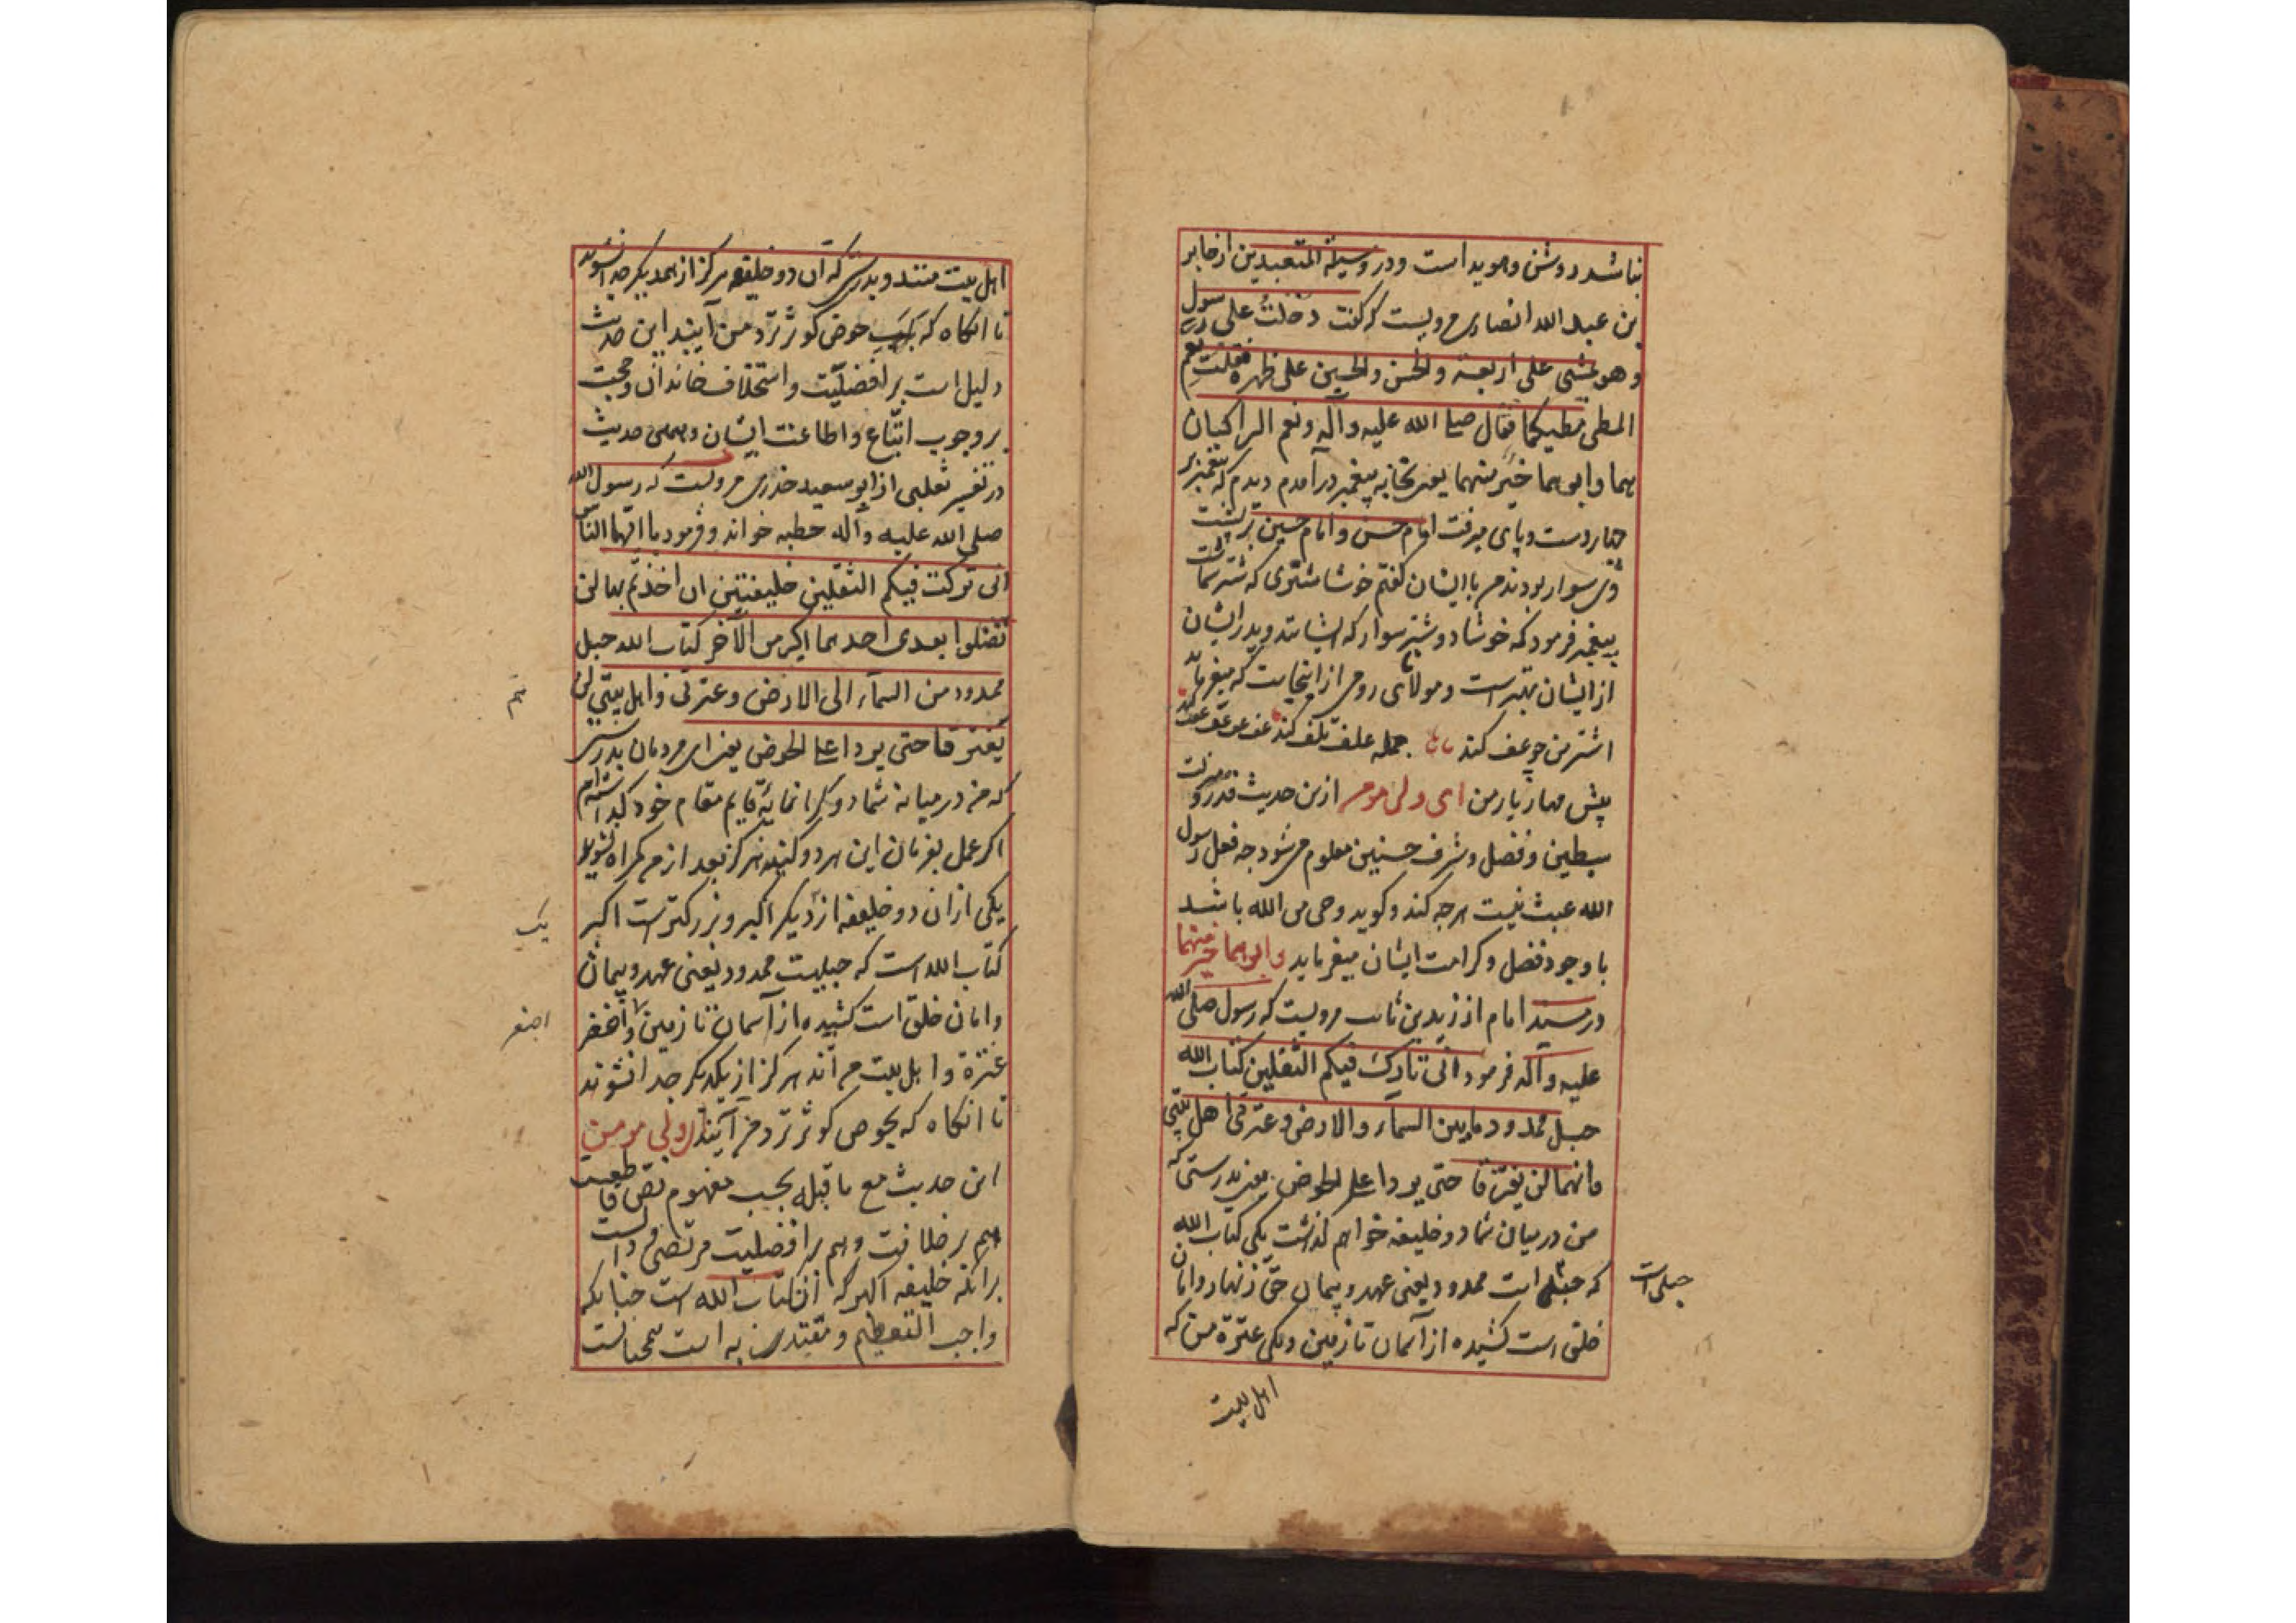 نباشد روشن و هویداست و در وسیلة المتعبدین از جابر
بن عبد الله انصاری مرویست که گفت دخلت علی رسول
و هو یمشی علی اربعة والحسن والحسین علی ظهره فقلت نعم
المطی مطیکما فقال صلی الله علیه وآله ونعم الراکبان
هما وابوهما خیر منهما یعنی بخانه پیغمبر درآمدم دیدم که پیغمبر
چهار دست و پای میرفت امام حسن و امام حسین بر پشت
وی سوار بودند من با ایشان گفتم خوشا شتری که شتر شماست
پیغمبر فرمود که خوشا دو شتر سوار که ایشانند و پدر ایشان
از ایشان بهتر است و مولانای رومی از اینجاست که میفرماید
اشتر من چو عف کند جمله علف تلف کند عف عف عف عف کند
پیش مهار یار من ای ولی مومن ازین حدیث قدر و منزلت
سبطین و فضل و شرف حسنین معلوم میشود چه فعل رسول
الله عبث نیست هرچه کند و گوید وحی من الله باشد
با وجود فضل و کرامت ایشان میفرماید وابوهما خیر منهما
در مسند امام از زید بن ثابت مرویست که رسول صلی الله
علیه وآله فرمود انی تارک فیکم الثقلین کتاب الله
حبل ممدود مابین السماء والارض وعترتی اهل بیتی
وانهما لن یفترقا حتی یردا علی الحوض یعنی بدرستی که
من در میان شما دو خلیفه خواهم گذاشت یکی کتاب الله
که حبلی است ممدود یعنی عهد و پیمان حق و زنهار و امان
حبلی است
خلق است کشیده از آسمان تا زمین و یکی عترة من که
اهل بیت
اهل بیت منند و بدرستی که آن دو خلیفه هرگز از همدیگر جدا نشوند
تا آنگاه که بلب حوض کوثر نزد من آیند این حدیث
دلیل است بر افضلیت و استخلاف خاندان و حجت
بر وجوب اتباع و اطاعت ایشان و همین حدیث
در تفسیر ثعلبی از ابو سعید خدری مرویست که رسول الله
صلی الله علیه وآله خطبه خواند و فرمود یا ایها الناس
انی ترکت فیکم الثقلین خلیفتین ان اخذتم بهما لن
تضلوا بعدی احدهما اکبر من الآخر کتاب الله حبل
ممدود من السماء الی الارض وعترتی واهل بیتی لن
یفترقا حتی یردا علی الحوض یعنی ای مردمان بدرستی
که من در میانه شما دو گرانمایه قایم مقام خود گذاشته‌ام
اگر عمل بفرمان این هر دو کنید هرگز بعد از من گمراه نشوید
یکی از آن دو خلیفه از دیگر اکبر و بزرگترست اکبر
یک
کتاب الله است که حبلیست ممدود یعنی عهد و پیمان
و امان خلق است کشیده از آسمان تا زمین و اصغر
اصغر
عترة و اهل بیت من‌اند هرگز از یکدیگر جدا نشوند
تا آنگاه که بحوض کوثر نزد من آیند ای ولی مومن
این حدیث مع ما قبله بحسب مفهوم نص قاطعست
هم بر خلافت و هم بر افضلیت مرتضی و دالست
برآنکه خلیفه اکبر که آن کتاب الله است چنانکه
واجب التعظیم و مقتدی به است همچنانست